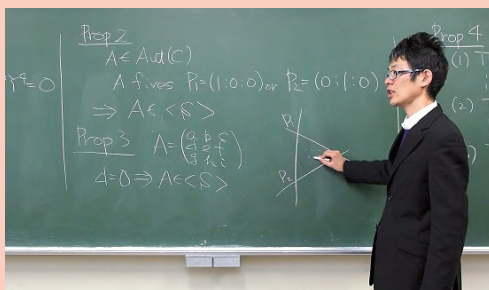 Y^q=0
Prop 2
A∈Aut(C)
A fixes P₁=(1:0:0) or P₂=(0:1:0)
⇒ A∈<S>
Prop 3
A=(a b c
d e f
g h i)
d=0⇒A∈<S>
P₁
P₂
Prop 4
(1) T
(2)